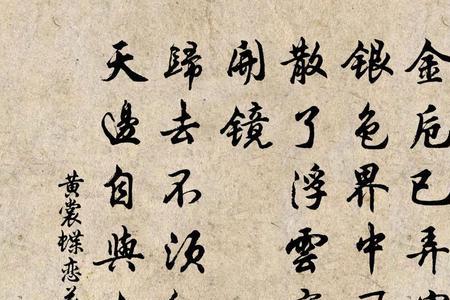 金卮已弄
銀色界中
散了浮雲
開鏡
歸去不須
天邊自與
黄裳蝶恋